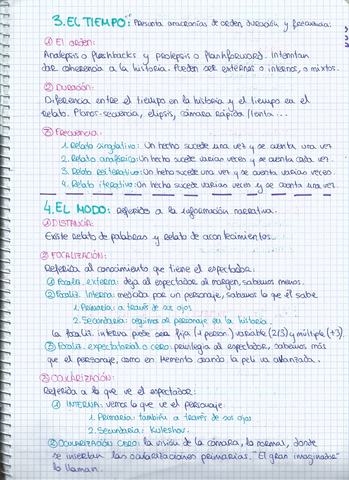 3. EL TIEMPO: Presenta anacronías de orden, duración y frecuencia:
① El orden:
Analepsis o flashbacks y prolepsis o flashforward. Intentan
dar coherencia a la historia. Pueden ser externos o internos, o mixtos.
② Duración:
Diferencia entre el tiempo en la historia y el tiempo en el
relato. Planos-secuencia, elipsis, cámara rápida/lenta...
③ Frecuencia:
1. Relato singulativo: Un hecho sucede una vez y se cuenta una vez
2. Relato anafórico: Un hecho sucede varias veces y se cuenta cada vez.
3. Relato repetitivo: Un hecho sucede una vez y se cuenta varias veces.
4. Relato iterativo: Un hecho sucede varias veces y se cuenta una vez
4. EL MODO: Referidos a la información narrativa.
① DISTANCIA:
Existe relato de palabras y relato de acontecimientos.
② FOCALIZACIÓN:
Referida al conocimiento que tiene el espectador:
① Focaliz. externa: deja al espectador al margen, sabemos menos.
② Focaliz. Interna: mediada por un personaje, sabemos lo que él sabe
1. Primaria: a través de sus ojos
2. Secundaria: seguimos al personaje en la historia.
La focaliz. interna puede ser fija (1 person.) variable (2/3) y múltiple (+3).
③ Focaliz. espectatorial o cero: privilegia al espectador, sabemos más
que el personaje, como en Memento cuando la peli va avanzada.
③ OCULARIZACIÓN:
Referida a lo que ve el espectador:
① INTERNA: vemos lo que ve el personaje.
1. Primaria: también a través de sus ojos
2. Secundaria: Kuleshov.
② OCULARIZACIÓN CERO: la visión de la cámara, la normal, donde
se insertan las ocularizaciones primarias. "El gran imaginador"
lo llaman.